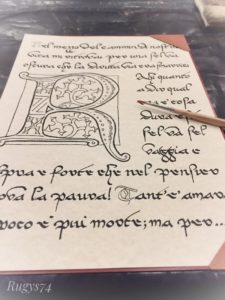 el mezzo del cammin di nostra
vita mi ritrovai per una selva
oscura che la diritta via era smarrita
Ahi quanto
a dir qual
e cosa
dura
sel va sel
vaggia e
spra e forte che nel pensier
ova la paura! Tant'è amar
poco è più morte; ma per...
Rugys74